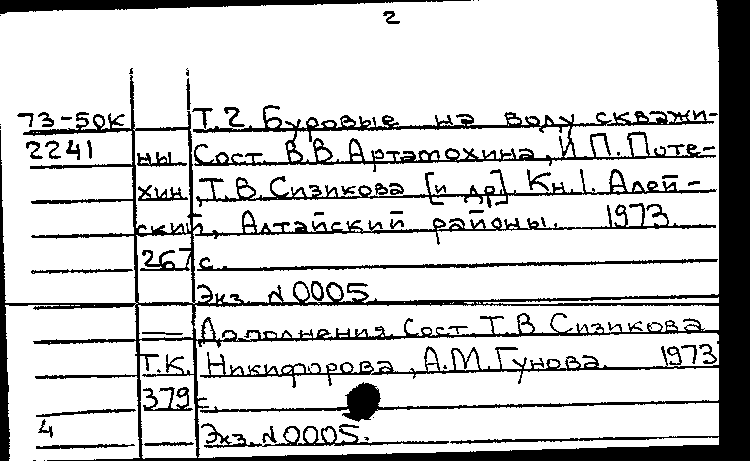 2
73-50к Т.2. Буровые на воду скважи-
2241 ны Сост. В.В. Артамохина, И.П. Поте-
хин, Т.В. Сизикова [и др]. Кн.1. Алей-
ский, Алтайский районы. 1973.
267 с.
Экз. №0005.
= Дополнения. Сост. Т.В. Сизикова
Т.К. Никифорова, А.М. Гунова. 1973
379 с.
4 Экз. №0005.